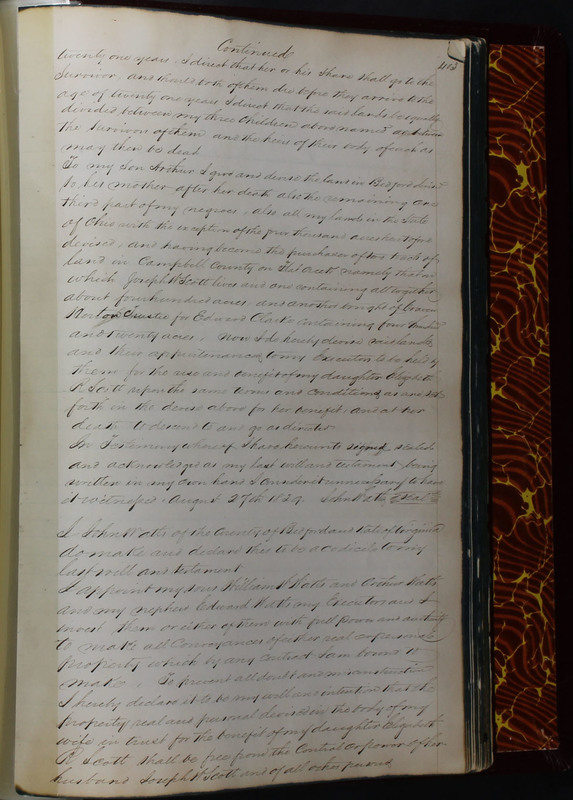 Continued
twenty one years. I direct that her or his Share shall go to the
Survivor, and should both of them die before they arrive to the
age of twenty one years I direct that the said lands be equally
divided between my three Children above named
the Survivors of them and the heirs of their body of such as
may then be dead
To my Son Arthur I give and devise the land in Bedford devised
to his mother after her death also the remaining one
third part of my negroes, also all my lands in the State
of Ohio with the exception of the four thousand acres heretofore
devised, and having become the purchaser of two tracts of
land in Campbell County on Creek namely that on
which Joseph W Scott lives and one containing all together
about four hundred acres and another bought of
Trustee for Edward Clark containing four hundred
and twenty acres. Now I do hereby devise said lands
and their appurtenances to my Executors to be held by
them for the use and benefit of my daughter Elizabeth
R Scott upon the same terms and conditions as are set
forth in the devise above for her benefit and at her
death to descend to and go as directed
In Testimony whereof I have hereunto signed sealed
and acknowledged as my last will and testament being
written in my own hand I consider it unnecessary to have
it witnessed. August 27th 1829. John Watts Seal
I John Watts of the County of Bedford and State of Virginia
do make and declare this to be a codicil to my
last will and testament
I appoint my sons William W Watts and Arthur Watts
and my nephew Edward Watts my Executors and I
invest them or either of them with full power and authority
to make all Conveyances of either real or personal
property which by any contract I am bound to
make. To prevent all doubt and misconstruction
I hereby declare it to be my will and intention that the
property real and personal devised in the body of my
will in trust for the benefit of my daughter Elizabeth
R Scott shall be free from the Control or power of her
husband Joseph W Scott and of all other persons